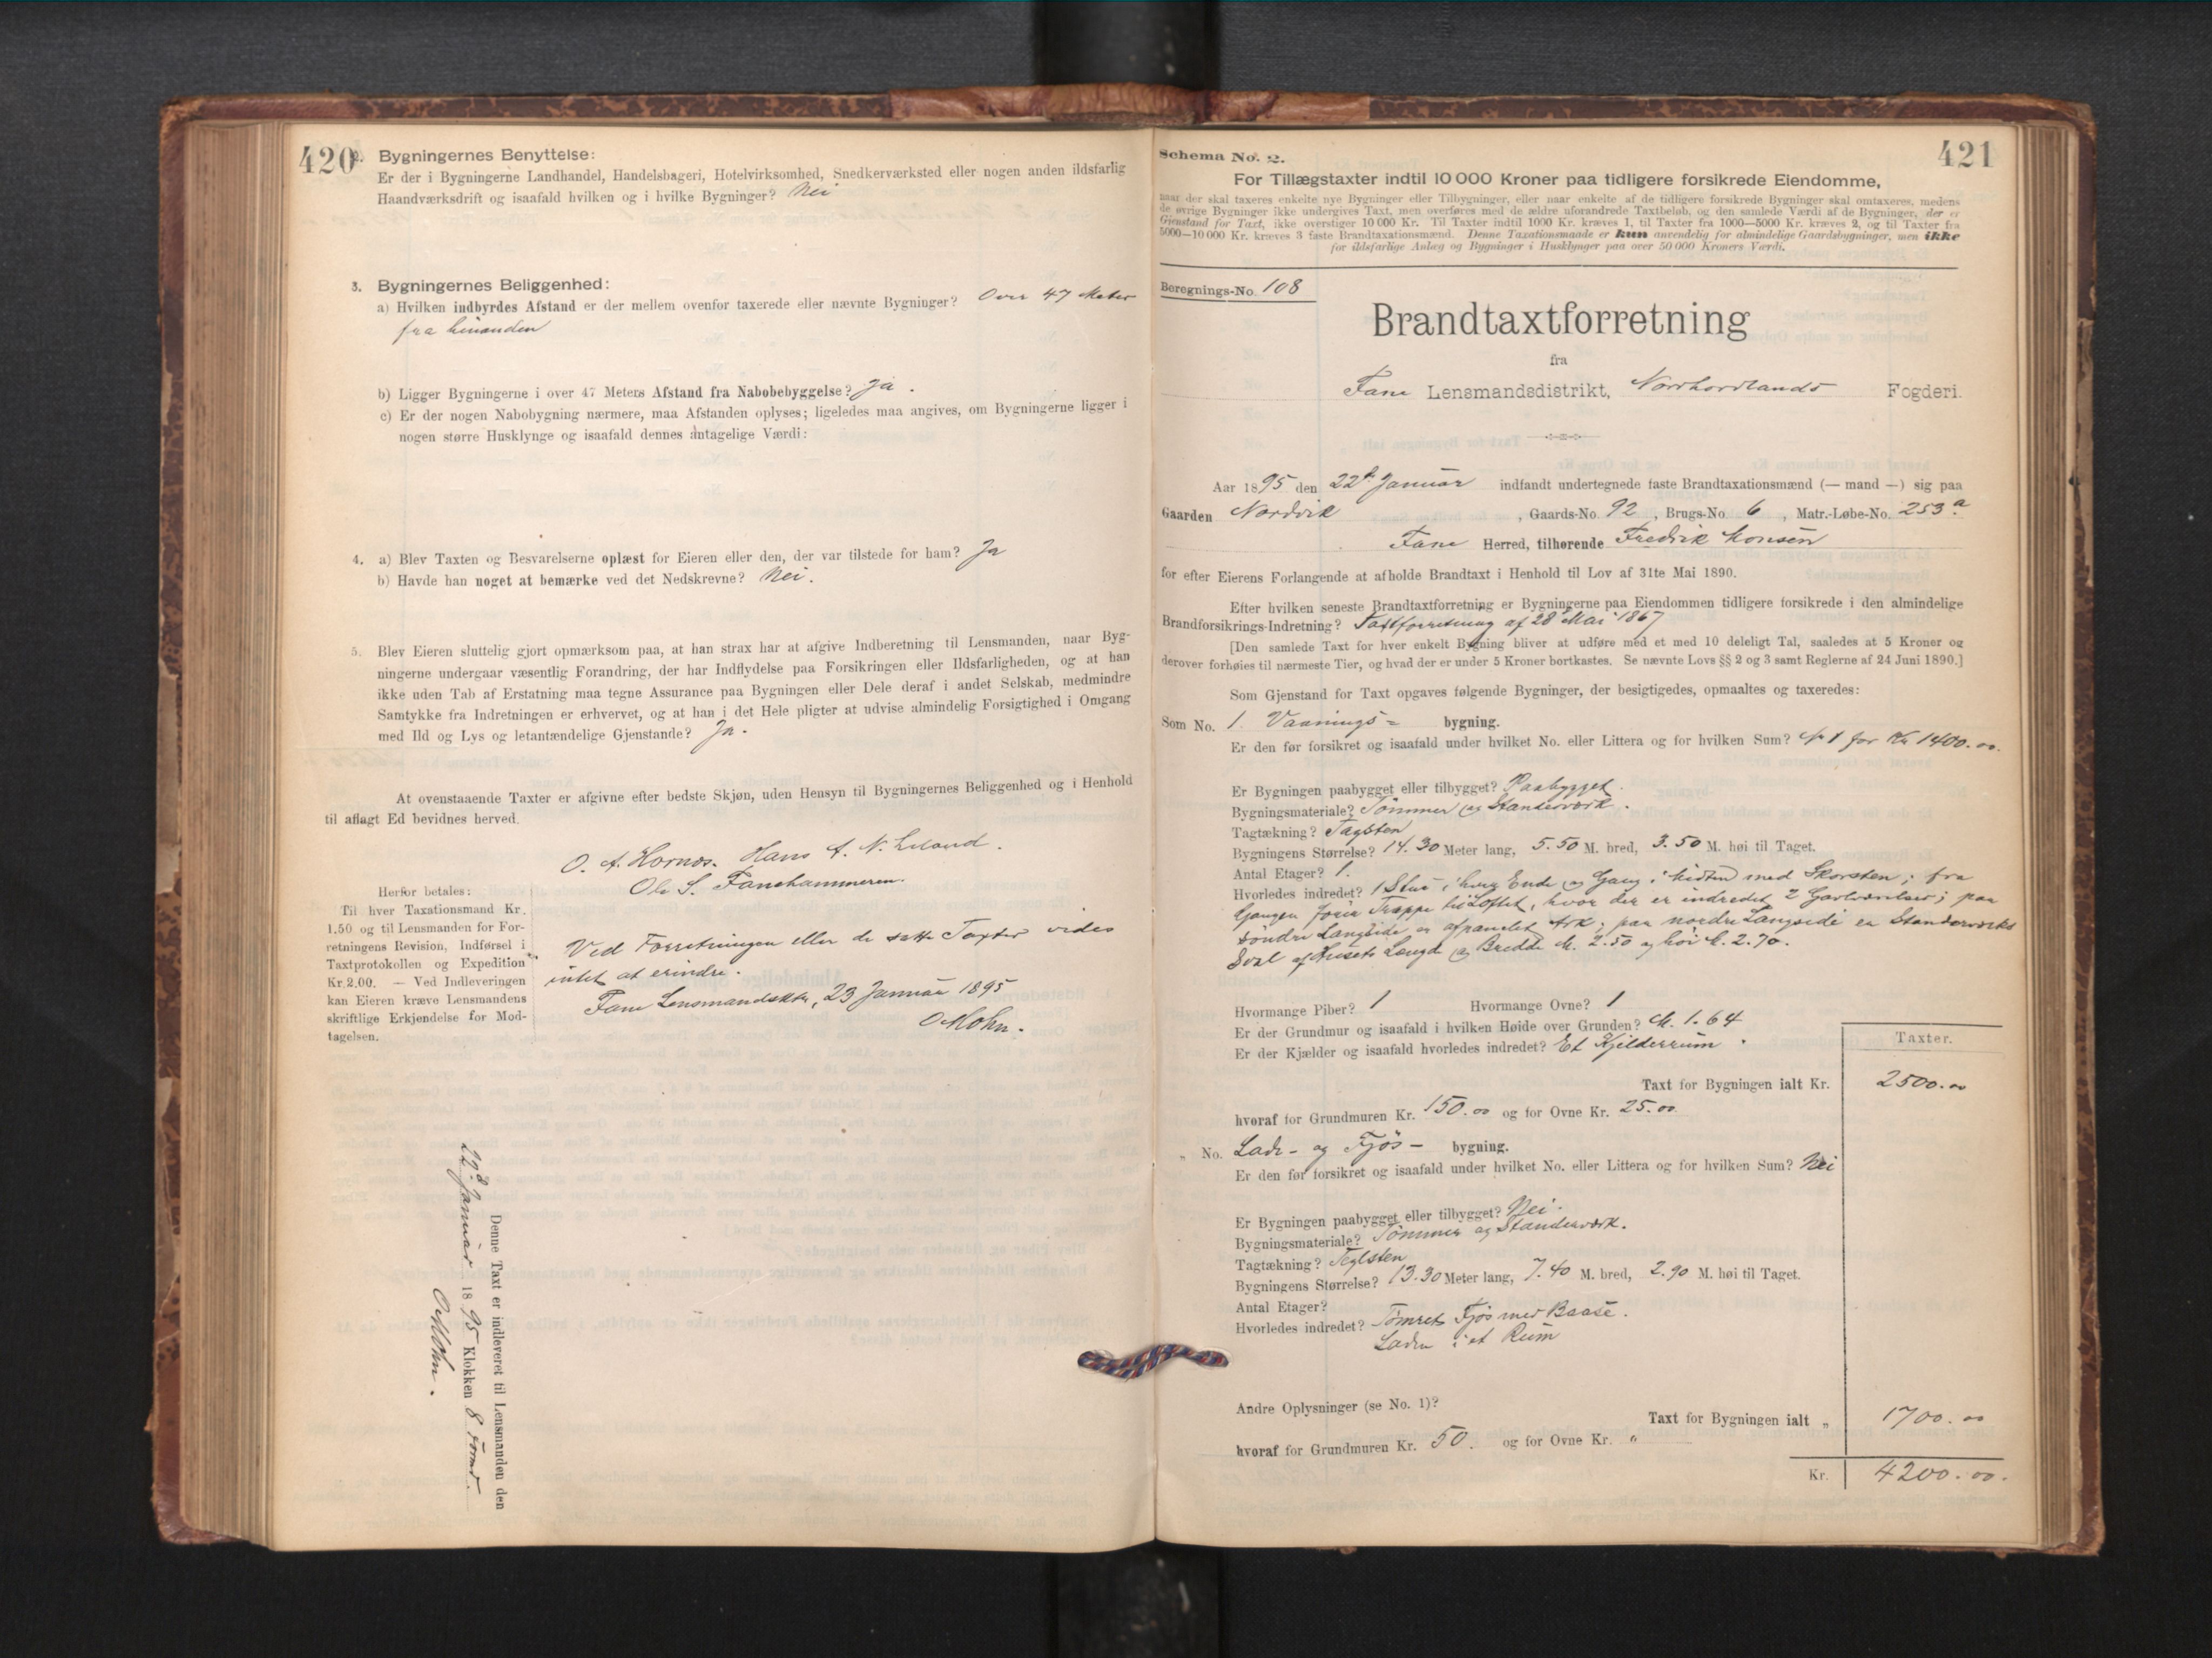 420
2. Bygningernes Benyttelse:
Er der i Bygningerne Landhandel, Handelsbageri, Hotelvirksomhed, Snedkerværksted eller nogen anden ildsfarlig
Haandværksdrift og isaafald hvilken og i hvilke Bygninger? Nei
3. Bygningernes Beliggenhed:
a) Hvilken indbyrdes Afstand er der mellem ovenfor taxerede eller nævnte Bygninger? Over 47 Meter
fra hinanden
b) Ligger Bygningerne i over 47 Meters Afstand fra Nabobebyggelse? Ja.
c) Er der nogen Nabobygning nærmere, maa Afstanden oplyses; ligeledes maa angives, om Bygningerne ligger i
nogen større Husklynge og isaafald dennes antagelige Værdi:
4. a) Blev Taxten og Besvarelserne oplæst for Eieren eller den, der var tilstede for ham? Ja
b) Havde han noget at bemærke ved det Nedskrevne? Nei.
5. Blev Eieren sluttelig gjort opmærksom paa, at han strax har at afgive Indberetning til Lensmanden, naar Byg-
ningerne undergaar væsentlig Forandring, der har Indflydelse paa Forsikringen eller Ildsfarligheden, og at han
ikke uden Tab af Erstatning maa tegne Assurance paa Bygningen eller Dele deraf i andet Selskab, medmindre
Samtykke fra Indretningen er erhvervet, og at han i det Hele pligter at udvise almindelig Forsigtighed i Omgang
med Ild og Lys og letantændelige Gjenstande? Ja.
At ovenstaaende Taxter er afgivne efter bedste Skjøn, uden Hensyn til Bygningernes Beliggenhed og i Henhold
til aflagt Ed bevidnes herved.
O. A. Hornos. Hans A. N.
Ole S. Fanehammeren.
Herfor betales:
Til hver Taxationsmand Kr.
1.50 og til Lensmanden for For-
retningens Revision, Indførsel i
Taxtprotokollen og Expedition
Kr. 2.00. — Ved Indleveringen
kan Eieren kræve Lensmandens
skriftlige Erkjendelse for Mod-
tagelsen.
Ved Forretningen eller de satte Taxter vides
intet at erindre.
Fane Lensmandsktr, 23 Januar 1895
O Mohn.
Denne Taxt er indleveret til Lensmanden den
22d Januar 1895 Klokken 8 Form.
O Mohn.
421
Schema No. 2.
For Tillægstaxter indtil 10 000 Kroner paa tidligere forsikrede Eiendomme,
naar der skal taxeres enkelte nye Bygninger eller Tilbygninger, eller naar enkelte af de tidligere forsikrede Bygninger skal omtaxeres, medens
de øvrige Bygninger ikke undergives Taxt, men overføres med de ældre uforandrede Taxtbeløb, og den samlede Værdi af de Bygninger, der er
Gjenstand for Taxt, ikke overstiger 10 000 Kr. Til Taxter indtil 1000 Kr. kræves 1, til Taxter fra 1000—5000 Kr. kræves 2, og til Taxter fra
5000—10 000 Kr. kræves 3 faste Brandtaxationsmænd. Denne Taxationsmaade er kun anvendelig for almindelige Gaardsbygninger, men ikke
for ildsfarlige Anlæg og Bygninger i Husklynger paa over 50 000 Kroners Værdi.
Beregnings-No. 108
Brandtaxtforretning
fra
Fane Lensmandsdistrikt, Nordhordlands Fogderi.
Aar 1895 den 22d Januar indfandt undertegnede faste Brandtaxationsmænd (— mand —) sig paa
Gaarden Nordvik, Gaards-No. 92, Brugs-No. 6, Matr.-Løbe-No. 253 a
Fane Herred, tilhørende Fredrik Monsen
for efter Eierens Forlangende at afholde Brandtaxt i Henhold til Lov af 31te Mai 1890.
Efter hvilken seneste Brandtaxtforretning er Bygningerne paa Eiendommen tidligere forsikrede i den almindelige
Brandforsikrings-Indretning? Taxtforretning af 28 Mai 1867
[Den samlede Taxt for hver enkelt Bygning bliver at udføre med et med 10 deleligt Tal, saaledes at 5 Kroner og
derover forhøies til nærmeste Tier, og hvad der er under 5 Kroner bortkastes. Se nævnte Lovs §§ 2 og 3 samt Reglerne af 24 Juni 1890.]
Som Gjenstand for Taxt opgaves følgende Bygninger, der besigtigedes, opmaaltes og taxeredes:
Som No. 1. Vaanings= bygning.
Er den før forsikret og isaafald under hvilket No. eller Littera og for hvilken Sum? No 1 for Kr 1400.00.
Er Bygningen paabygget eller tilbygget? Paabygget.
Bygningsmateriale? Tømmer og Standerværk.
Tagtækning? Tagsten
Bygningens Størrelse? 14.30 Meter lang, 5.50 M. bred, 3.50 M. høi til Taget.
Antal Etager? 1.
Hvorledes indredet? 1 Stue i hver Ende og Gang i Midten med Skorsten; fra
Gangen fører Trappe til Loftet, hvor der er indredet 2 Gavlværelser; paa
søndre Langside er afpanelet Ark; paa nordre Langside en Standerværks
Sval af Husets Længde og Bredde M. 2.50 og høi M. 2.70.
Hvormange Piber? 1 Hvormange Ovne? 1
Er der Grundmur og isaafald i hvilken Høide over Grunden? M. 1.64
Er der Kjælder og isaafald hvorledes indredet? Et Kjelderrum.
Taxter.
Taxt for Bygningen ialt Kr. 2500.00
hvoraf for Grundmuren Kr. 150.00 og for Ovne Kr. 25.00
" No. Lade- og Fjøs- bygning.
Er den før forsikret og isaafald under hvilket No. eller Littera og for hvilken Sum? Nei
Er Bygningen paabygget eller tilbygget? Nei.
Bygningsmateriale? Tømmer og Standerværk.
Tagtækning? Teglsten
Bygningens Størrelse? 13.30 Meter lang, 7.40 M. bred, 2.90 M. høi til Taget.
Antal Etager?
Hvorledes indredet? Tømret Fjøs med Baase.
Laden i et Rum
Andre Oplysninger (se No. 1)?
Taxt for Bygningen ialt " 1700.00
hvoraf for Grundmuren Kr. 50. og for Ovne Kr. "
Kr. 4200.00.